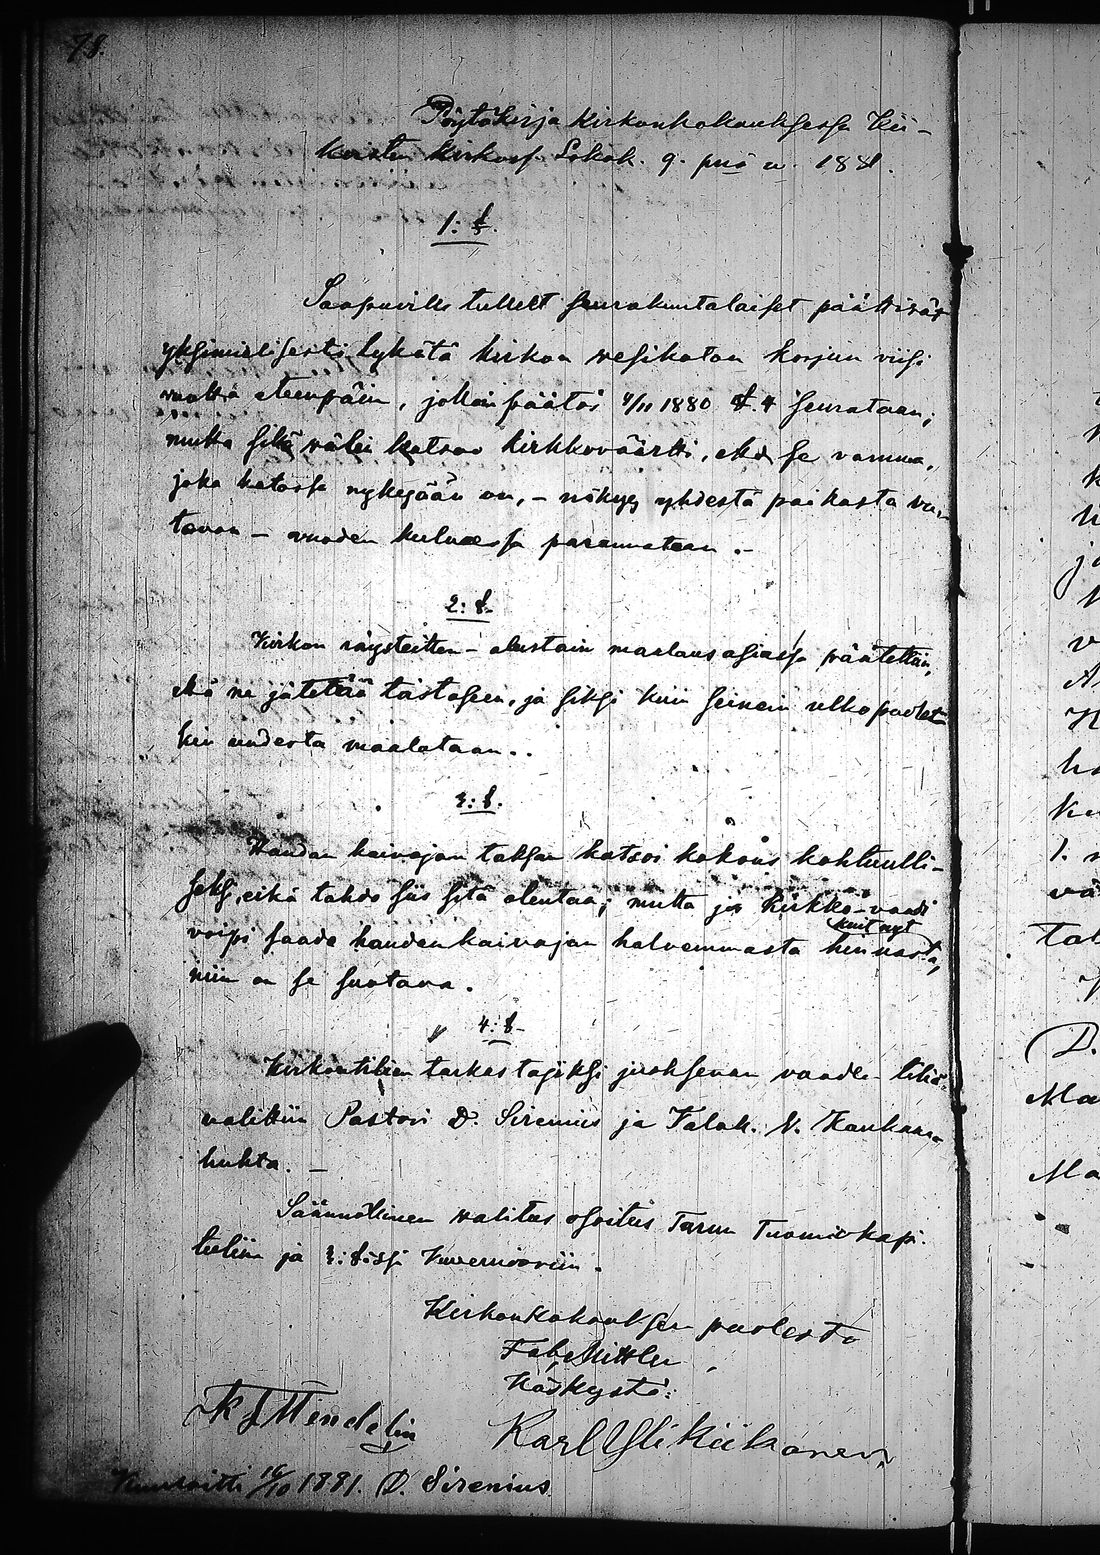 78.
Pöytäkirja kirkonkokouksessa Kii-
koisten kirkoss. Lokak. 9. pnä v. 1881.
1: §.
Saapuville tulleet seurakuntalaiset päättivät
yksimielisesti lykätä kirkon vesikaton korjun viisi
vuotta eteenpäin, jolloin päätös 7/11 1880 §. 4 seurataan;
mutta sillä välin katsoo kirkkoväärtti, että se vamma,
joka katossa nykyjään on, – näkyy yhdestä paikasta vuo-
tavan – vuoden kuluessa parannetaan. –
2: §.
Kirkon räysteitten-alustain maalausasiassa päätettiin,
että ne jätetää toistaseen, ja siksi kuin seinein ulkopuolet
kin uudesta maalataan..
3: §.
Haudan kaivajan taksan katsoi kokous kohtuulli-
seksi, eikä tahdo siis sitä alentaa; mutta jos kirkko-raati
kuit nyt
voipi saada haudankaivajan halvemmasta hinnasta,
niin on se suotava.
4: §.
Kirkontilien tarkastajiksi juoksevan vuoden tiliä
valittiin Pastori D. Sirenius ja Talok. N. Kaukaan-
huhta. –
Säännöllinen valitus osoitus Turun Tuomiokapi-
tuliin ja 3: §:ssä Kuvernööriin.
Kirkonkokouksen puolesta
Käskystä:
K J Mendelin
Karl Yli Kiikonen
Kuuloitti 16/10 1881. D. Sirenius.